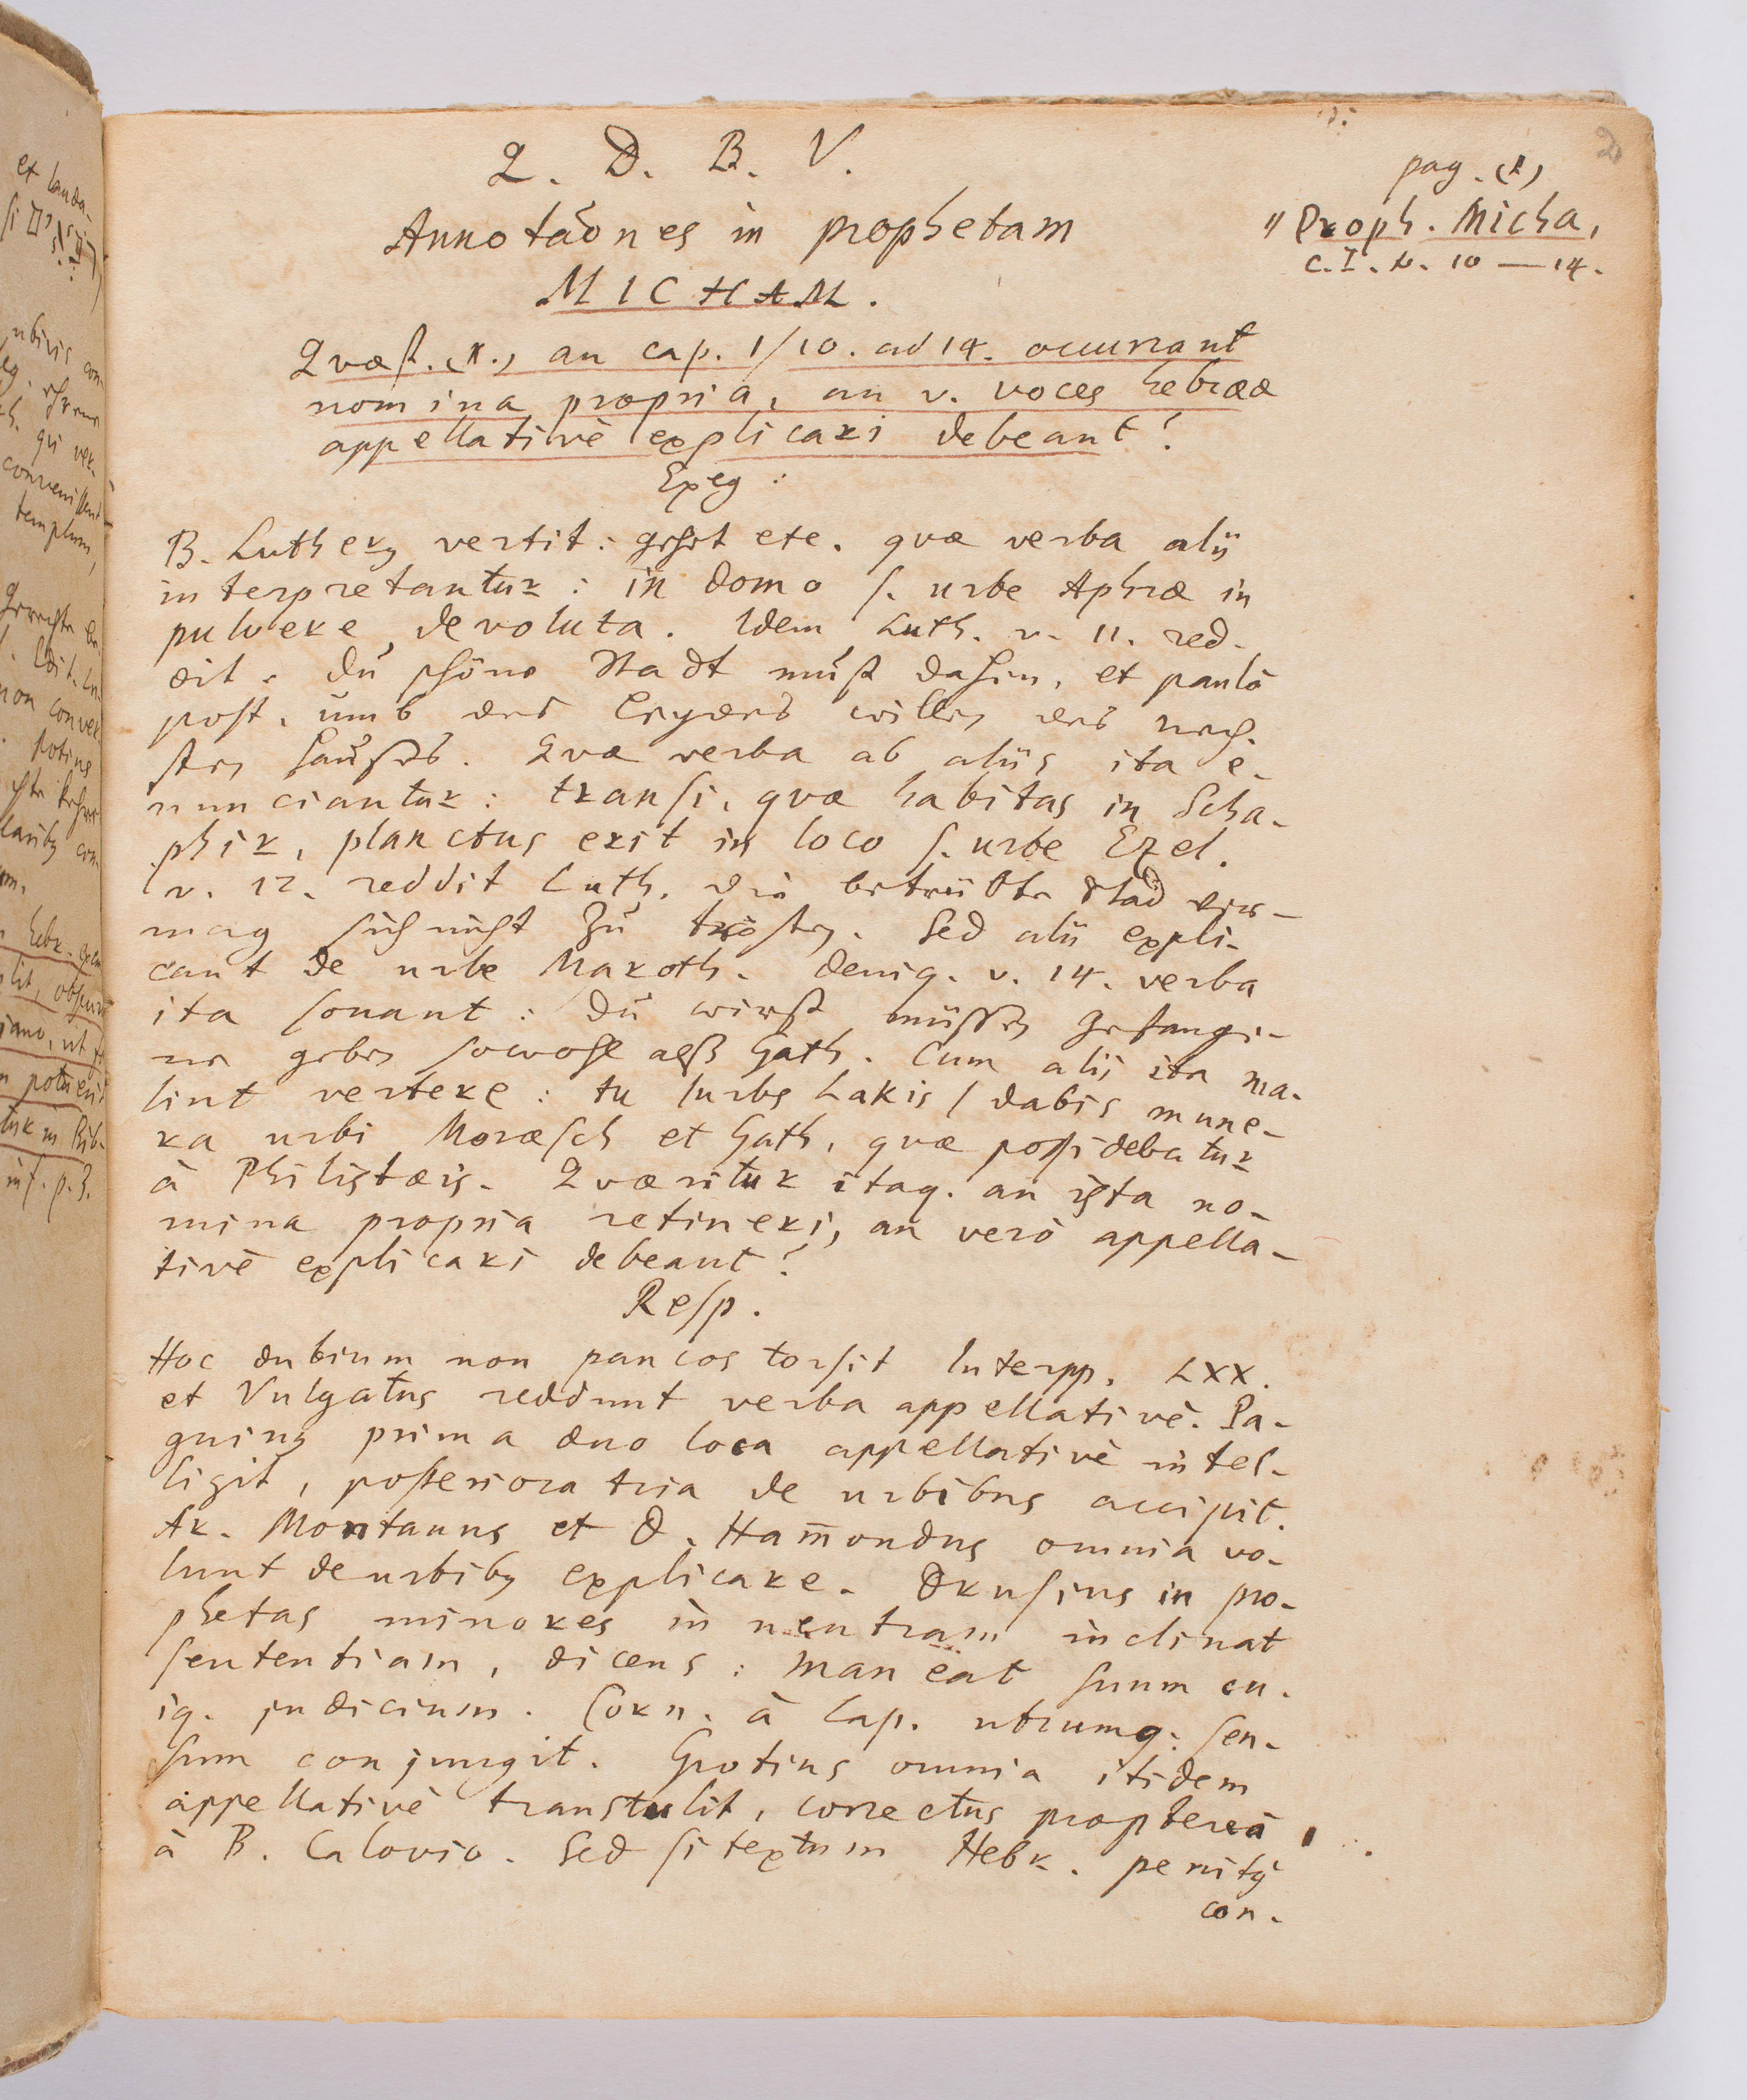 Q. D. B. V.
pag. (1)
2
Annotaões in prophetam
" Proph. Micha,
MICHAM.
c. I. v. 10 — 14.
Qvæst. (1.) an cap. 1/10. ad 14. occurrant
nomina propria, an v. voces hebrææ
appellativè explicari debeant?
Exeg:
B. Lutherg vertit: gehet ete. qvæ verba alij
interpretantur: in domo s. urbe Aphræ in
pulvere devoluta. Idem Luth. v. 11. red-
dit. Dú schöne Stadt must dahin, et paulò
post. ümb des Leydes willen des nech-
sten haußes. Qvæ verba ab aliis ita e-
nunciantur: transi, qvæ habitas in Scha-
phir, planctus erit in loco s. urbe Ezel.
v. 12. reddit Luth. die betrübte Stad ver-
mag sich nicht zu trösten. Sed alii expli-
cant de urbe Maroth. Deniq. v. 14. verba
ita sonant: Dú wirst müssen gefange-
ne geben sowohl alß Gath. Cum alii ita ma-
lint vertere: tu /urbs Lakis/ dabis mune-
ra urbi Moræsch et Gath, qvæ possidebatur
à Philistæis. Qværitur itaq. an ista no-
mina propria retineri, an verò appella-
tivè explicari debeant?
Resp.
Hoc dubium non paucos torsit Interpp. LXX.
et Vulgatus reddunt verba appellativè. Pa-
gning prima duo loca appellativè intel-
ligit, posteriora tria de urbibus accipit.
Ar. Montanus et D. Ham̄ondus omnia vo-
lunt de urbibg explicare. Drusius in pro-
phetas minores in neutram inclinat
sententiam, dicens: maneat suum cu-
iq. judicium. Corn. à Lap. utrumq. sen-
sum conjungit. Grotius omnia itidem
appellativè transtulit, correctus propterea
à B. Calovio. Sed si textum Hebr. penitg
con-